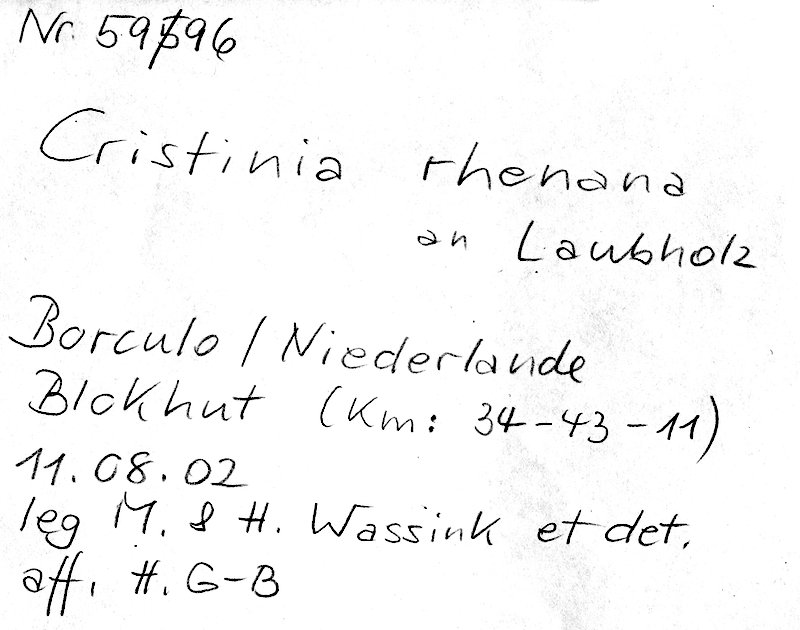 Nr. 59596
Cristinia rhenana
an Laubholz
Borculo / Niederlande
Blokhut (Km: 34-43-11)
11.08.02
leg M. & H. Wassink et det.
aff. H. G-B